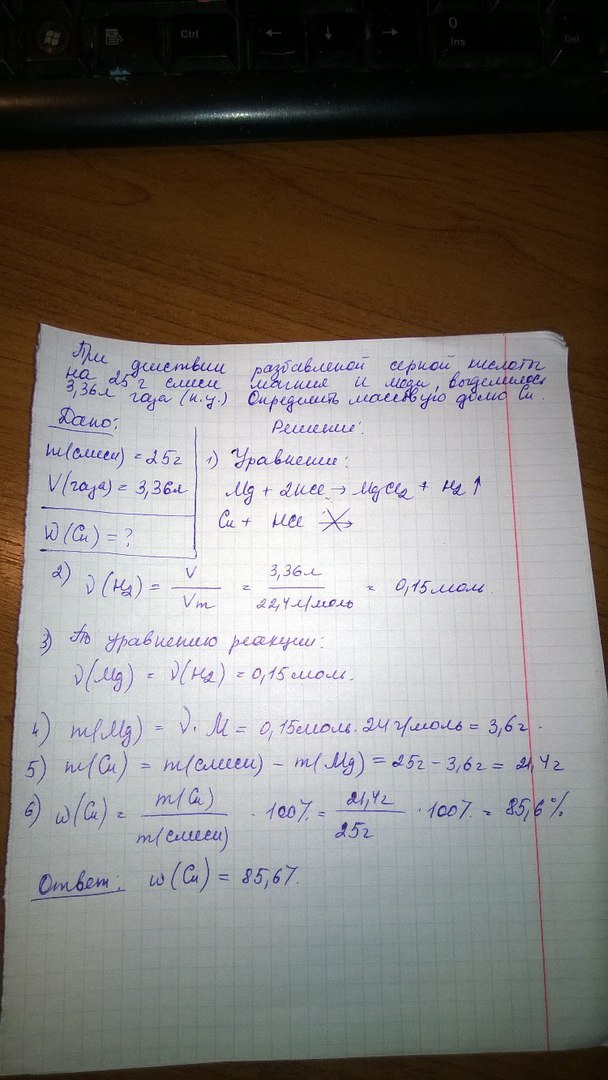 Ctrl
0
Ins
Del
При действии разбавленой серной кислоты
на 25г смеси магния и меди, выделилось
3,36л газа (н.у.) Определить массовую долю Cu.
Дано:
m(смеси) = 25г
V(газа) = 3,36л
W(Cu) = ?
Решение:
1) Уравнение:
Mg + 2HCl → MgCl2 + H2 ↑
Cu + HCl ↛
2) ν(H2) = V/Vm = 3,36л/22,4л/моль = 0,15моль.
3) По уравнению реакции:
ν(Mg) = ν(H2) = 0,15мол.
4) m(Mg) = ν · M = 0,15моль · 24г/моль = 3,6г.
5) m(Cu) = m(смеси) - m(Mg) = 25г - 3,6г = 21,4г
6) w(Cu) = m(Cu)/m(смеси) · 100% = 21,4г/25г · 100% = 85,6%
Ответ: w(Cu) = 85,6%.